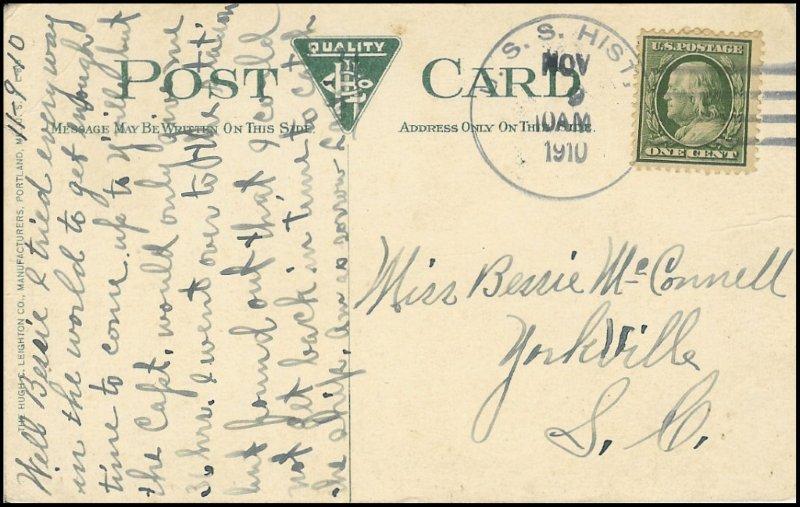 QUALITY
POST CARD
MESSAGE MAY BE WRITTEN ON THIS SIDE
ADDRESS ONLY ON THIS SIDE.
S. S. HIST.
NOV
9
10AM
1910
U.S. POSTAGE
ONE CENT
Miss Bessie McConnell
Yorkville
S. C.
THE HUGH C. LEIGHTON CO., MANUFACTURERS, PORTLAND, ME., U. S. A.
11-9-10
Well Bessie I tried every way
in the world to get enough
time to come up to but
the Capt, would only give me
36 hrs. I went over to the station
but found out that I could
not get back in time to catch
the ship, am so sorrow